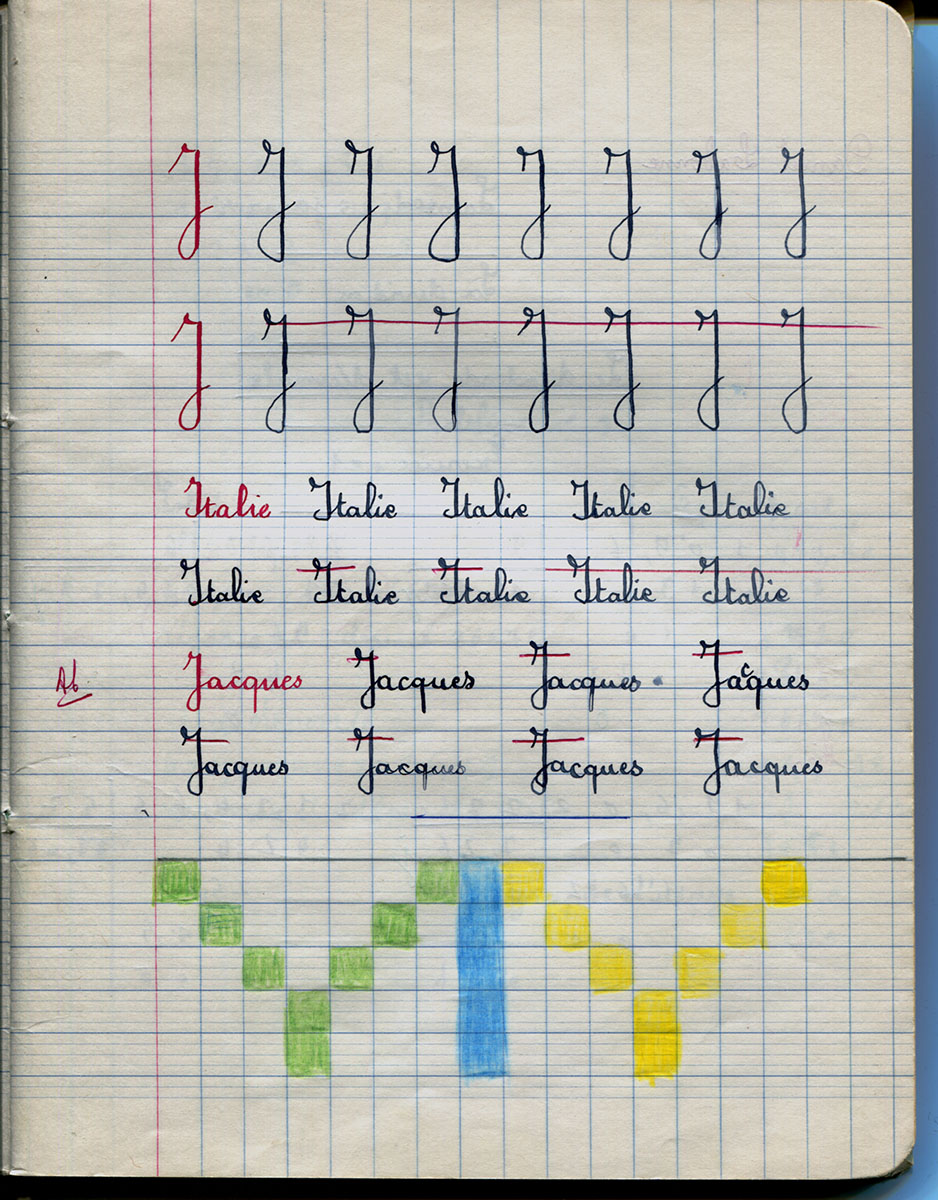 J J J J J J J J
J J J J J J J J
Italie Italie Italie Italie Italie
Italie Italie Italie Italie Italie
Jacques Jacques Jacques Jacques
Ab
Jacques Jacques Jacques Jacques